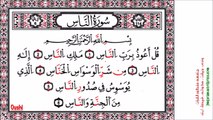 سُورَةُ النَّاسِ
بِسْمِ اللَّهِ الرَّحْمَٰنِ الرَّحِيمِ
قُلْ أَعُوذُ بِرَبِّ النَّاسِ ۝١ مَلِكِ النَّاسِ ۝٢ إِلَٰهِ
النَّاسِ ۝٣ مِن شَرِّ الْوَسْوَاسِ الْخَنَّاسِ ۝٤ الَّذِي
يُوَسْوِسُ فِي صُدُورِ النَّاسِ ۝٥
مِنَ الْجِنَّةِ وَالنَّاسِ ۝٦